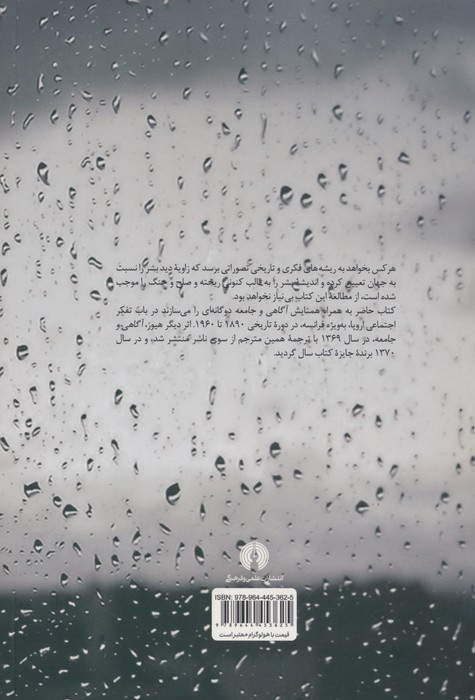 هر کس بخواهد به ریشه‌های فکری و تاریخی تصوراتی برسد که زاویهٔ دید بشر را نسبت
به جهان تعیین کرده و اندیشهٔ بشر را به قالب کنونی ریخته و صلح و جنگ را موجب
شده است، از مطالعهٔ این کتاب بی‌نیاز نخواهد بود.
کتاب حاضر به همراه همتایش آگاهی و جامعه دوگانه‌ای را می‌سازند در باب تفکر
اجتماعی اروپا، به‌ویژه فرانسه، در دورهٔ تاریخی ۱۸۹۰ تا ۱۹۶۰. اثر دیگر هیوز، آگاهی و
جامعه، در سال ۱۳۶۹ با ترجمهٔ همین مترجم از سوی ناشر منتشر شد، و در سال
۱۳۷۰ برندهٔ جایزهٔ کتاب سال گردید.
انتشارات علمی و فرهنگی
ISBN: 978-964-445-362-5
9 789644 453625
قیمت با هولوگرام معتبر است